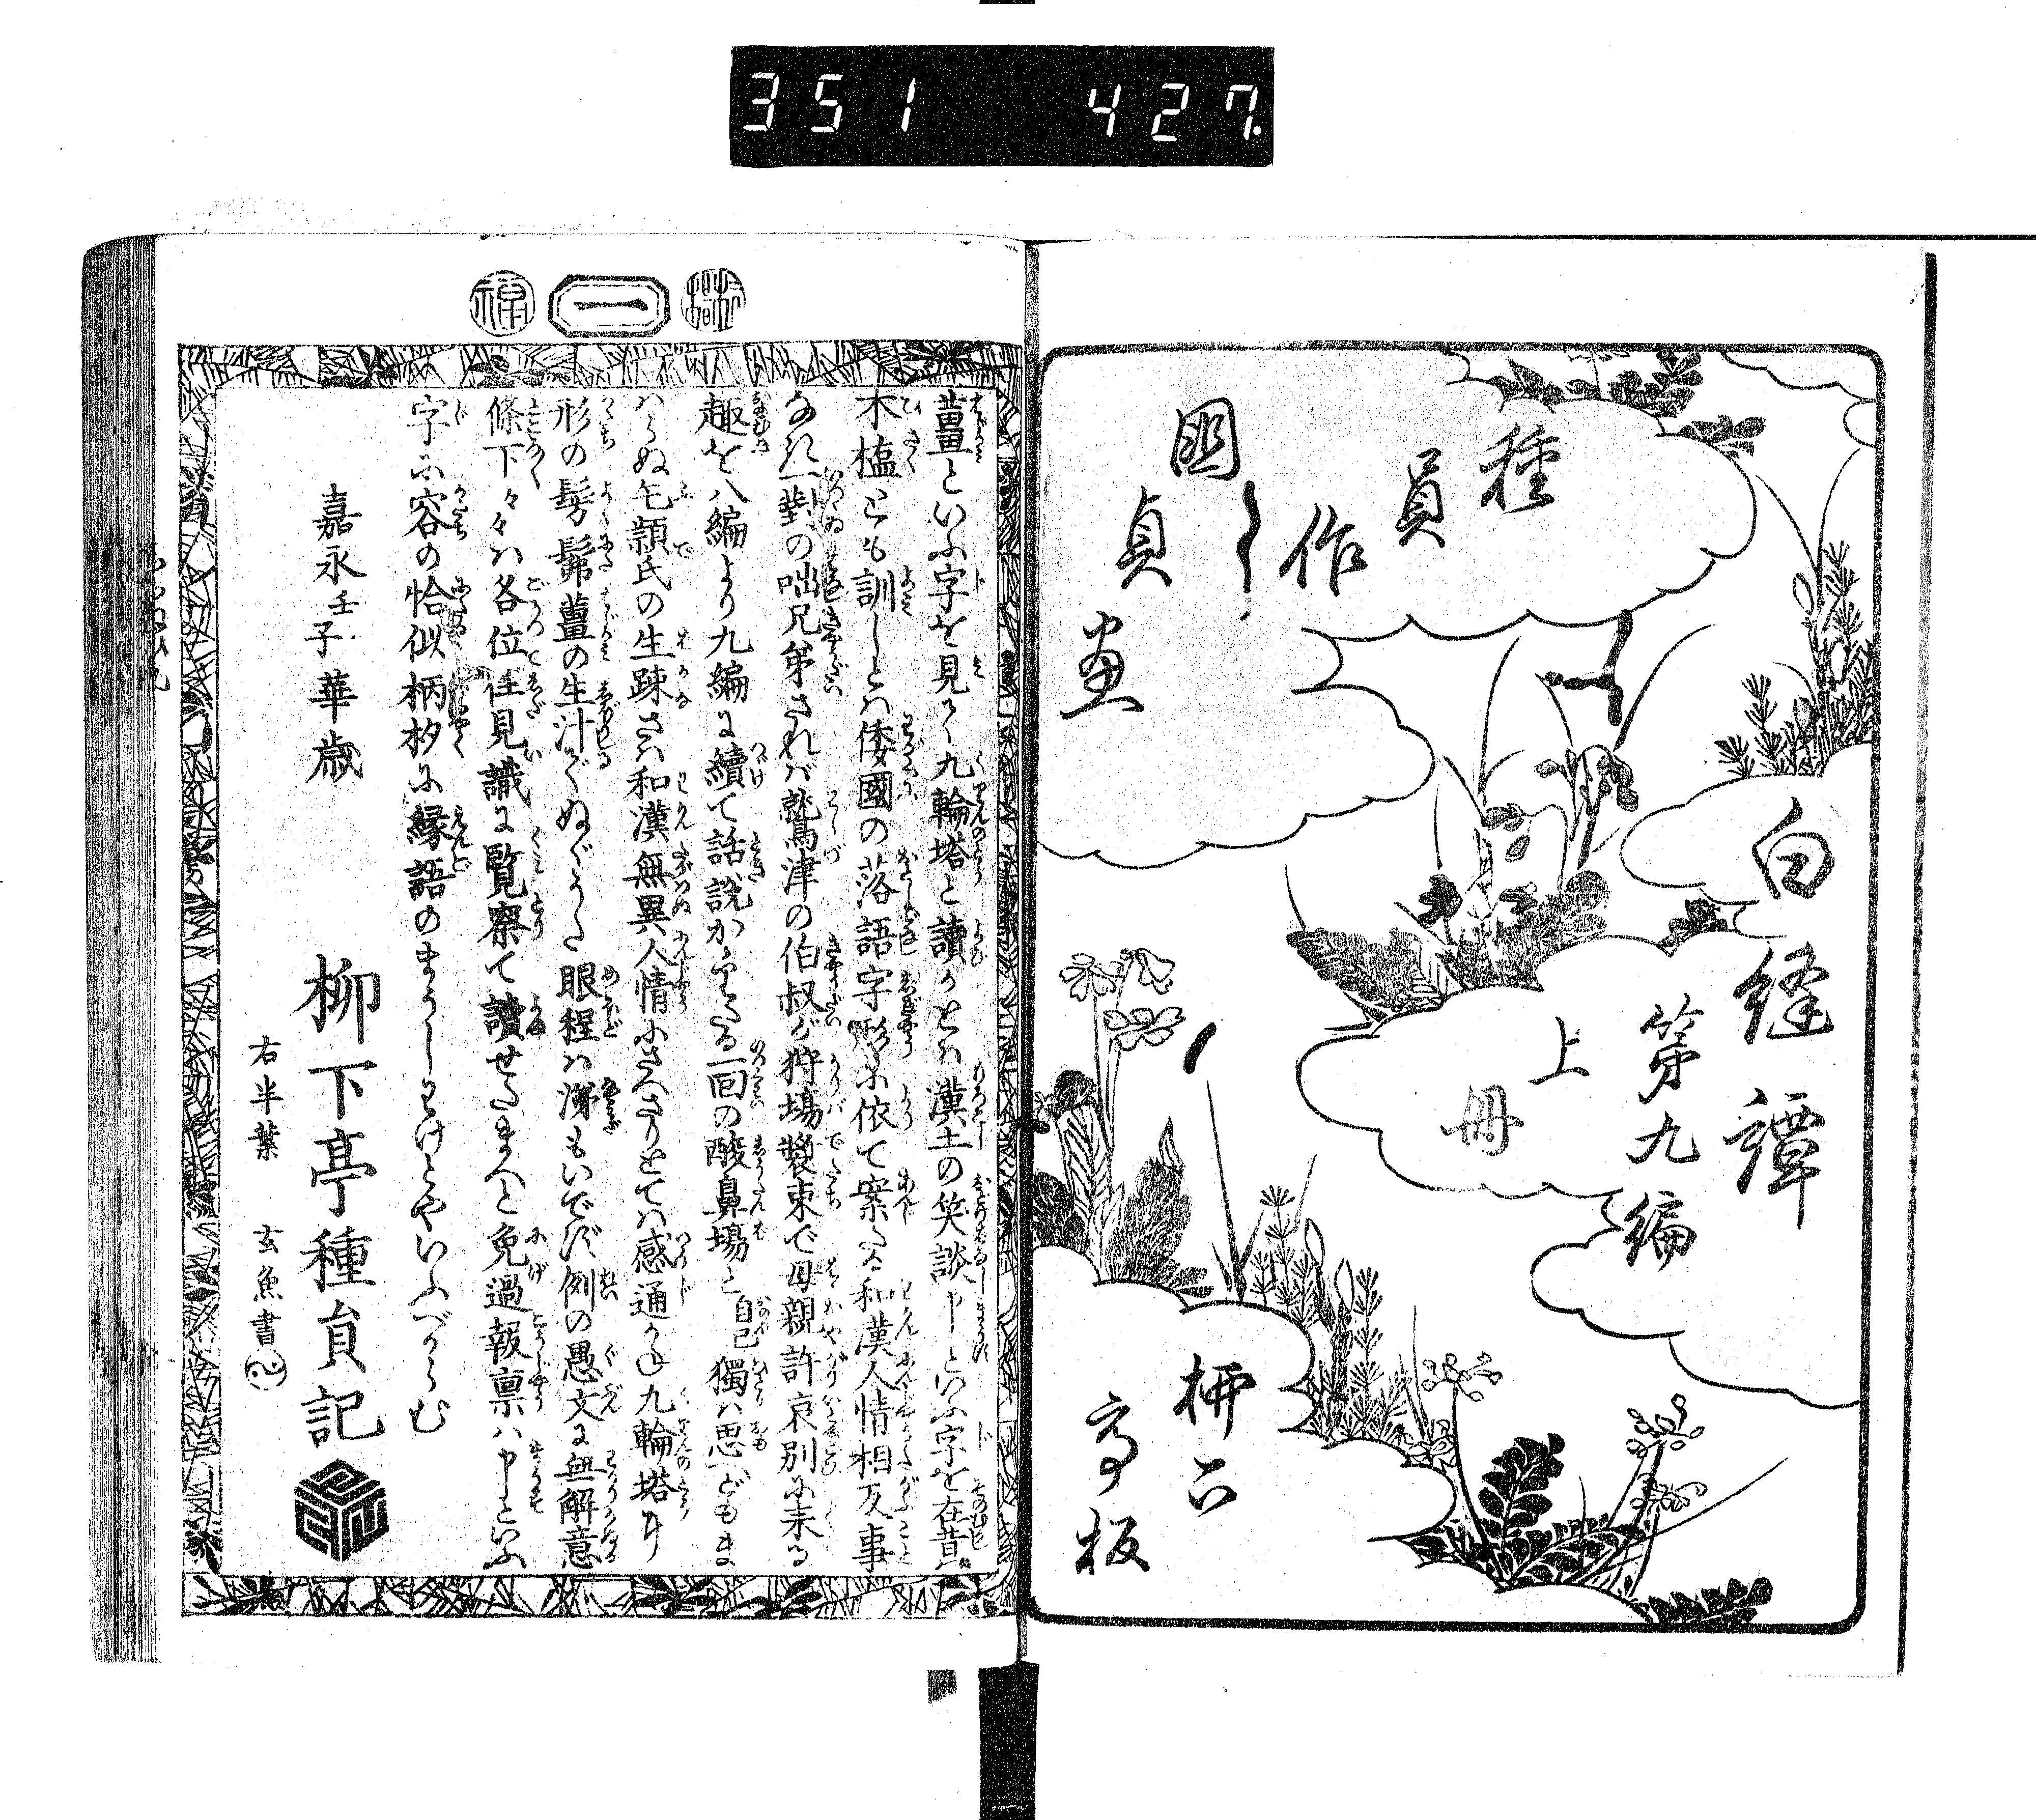 351 427.
白縫譚
第九編
上
冊
種員作
國貞画
栫六
亭板
一
薑といふ字を見て九輪塔と讀しとは漢土の笑談申といふ字を在昔
木榼とも訓しとは倭國の落語字形に依て案たる和漢人情相反事
一對の咄兄弟されば鷲津の伯叔が狩場裝束で母親許哀別に来る
趣を八編より九編に續て話説かゝる一回の酸鼻場と自己獨は思へどもま
はらぬ毛頴氏の生疎さは和漢無異人情にさへさりとては感通かね九輪塔
形の髣髴薑の生汁でぬぐうた眼程は涕もいでず例の愚文に無解意
條下々々は各位方見識に覧察て讀せたまへと免過報禀は申といふ
字に容の恰似柄杓に縁語のまうしわけとやいふべからむ
嘉永壬子華歳
柳下亭種員記
右半葉 玄魚書